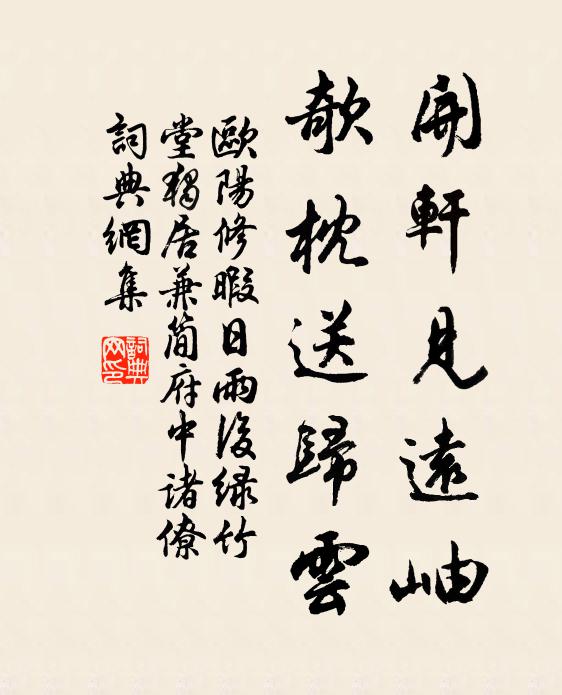 開軒見遠岫
欹枕送歸雲
歐陽修暇日雨後綠竹
堂獨居兼简府中諸僚
詞典網集
詞典
网印